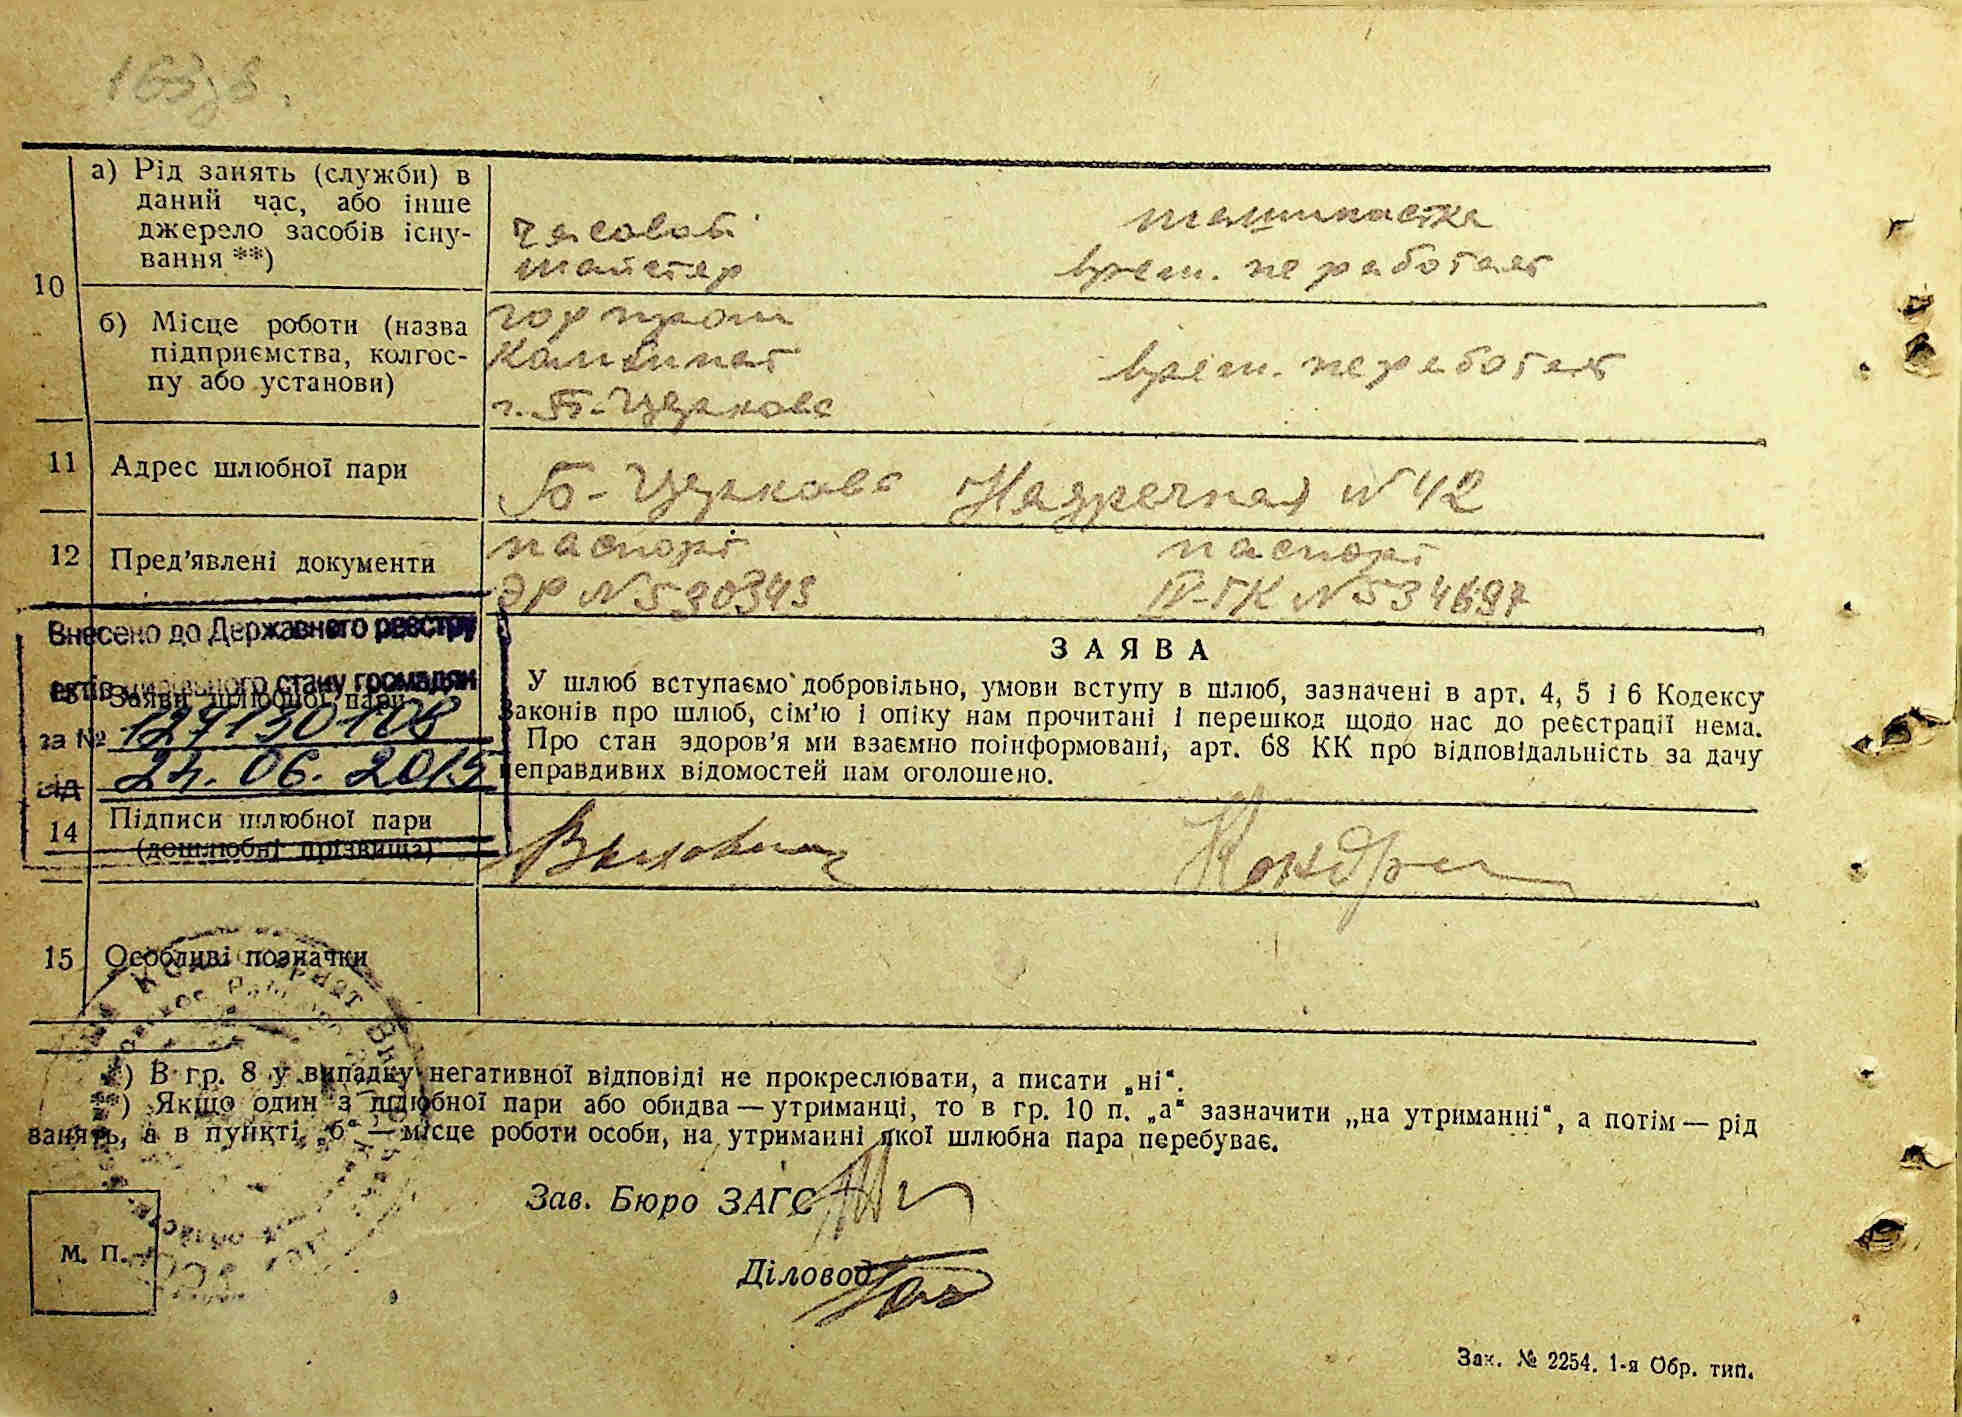 163
10
а) Рід занять (служби) в
даний час, або інше
джерело засобів існу-
вання **)
часовой
майстер
машинистка
врем. не работает
б) Місце роботи (назва
підприємства, колгос-
пу або установи)
гор пром
Комбинат
г. Б-Церковь
врем. не работает
11
Адрес шлюбної пари
Б-Церковь
N 42
12
Пред’явлені документи
паспорт
ЭР N 590343
паспорт
IV-ГК N 534697
Внесено до Державного реєстру
актів цивільного стану громадян
Заяви шлюбної пари
за №
від 24.06.2015
ЗАЯВА
У шлюб вступаємо добровільно, умови вступу в шлюб, зазначені в арт. 4, 5 і 6 Кодексу
Законів про шлюб, сім’ю і опіку нам прочитані і перешкод щодо нас до реєстрації нема.
Про стан здоров’я ми взаємно поінформовані, арт. 68 КК про відповідальність за дачу
неправдивих відомостей нам оголошено.
14
Підписи шлюбної пари
(дошлюбні прізвища)
15
Особливі позначки
*) В гр. 8 у випадку негативної відповіді не прокреслювати, а писати „ні“.
**) Якщо один з шлюбної пари або обидва — утриманці, то в гр. 10 п. „а“ зазначити „на утриманні“, а потім — рід
занять, а в пункті „б“ — місце роботи особи, на утриманні якої шлюбна пара перебуває.
Зав. Бюро ЗАГС
М. П.
Діловод
Зак. № 2254. 1-я Обр. тип.